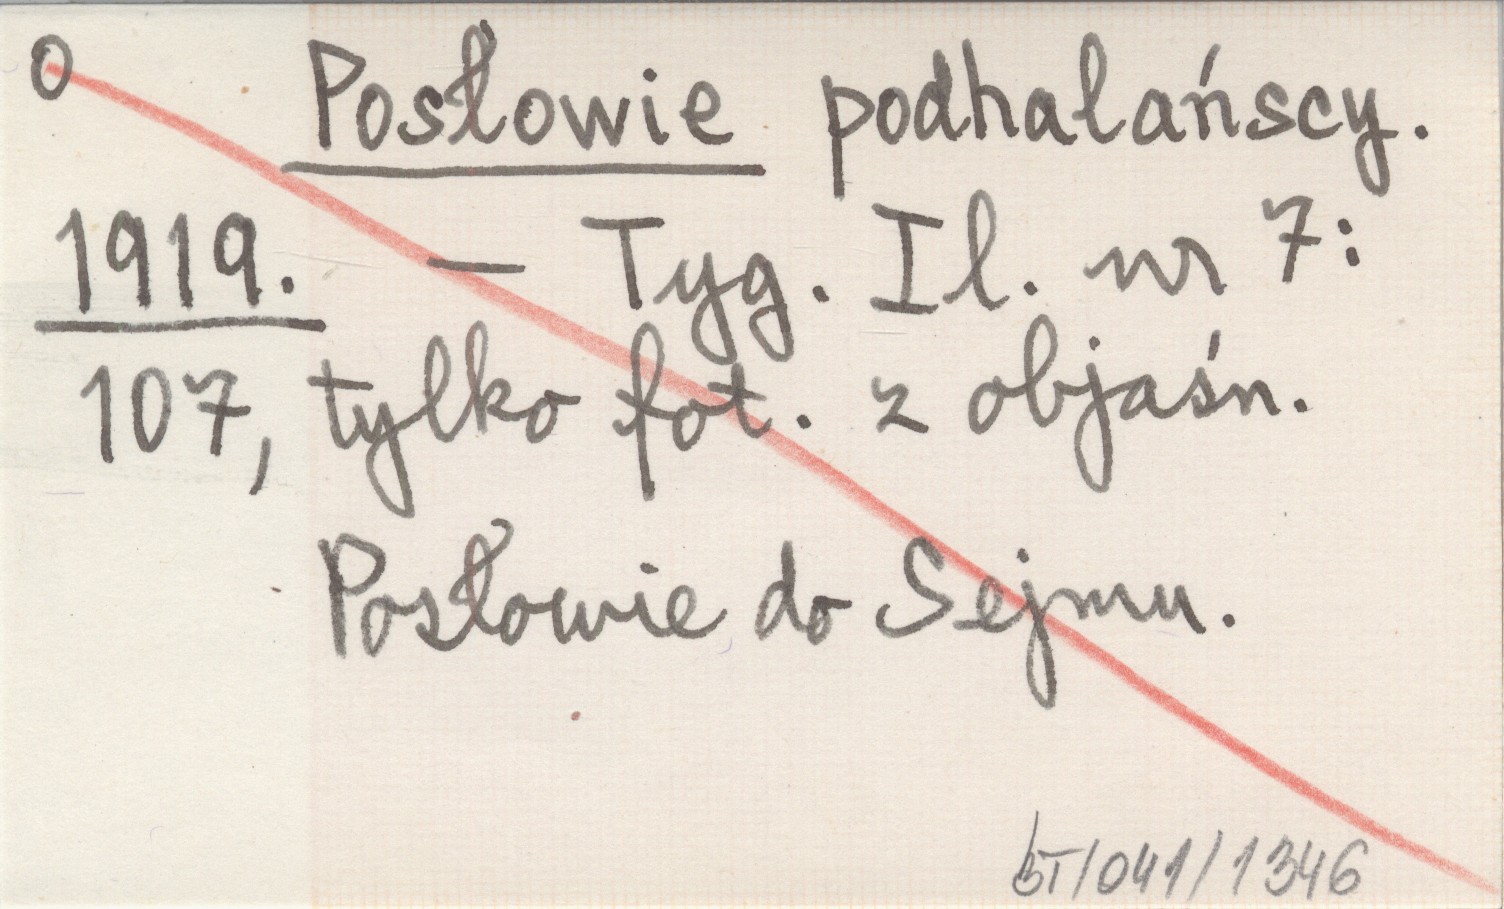 O Posłowie podhalańscy.
1919. – Tyg. Il. nr 7:
107, tylko fot. z objaśn.
Posłowie do Sejmu.
BT/041/1346